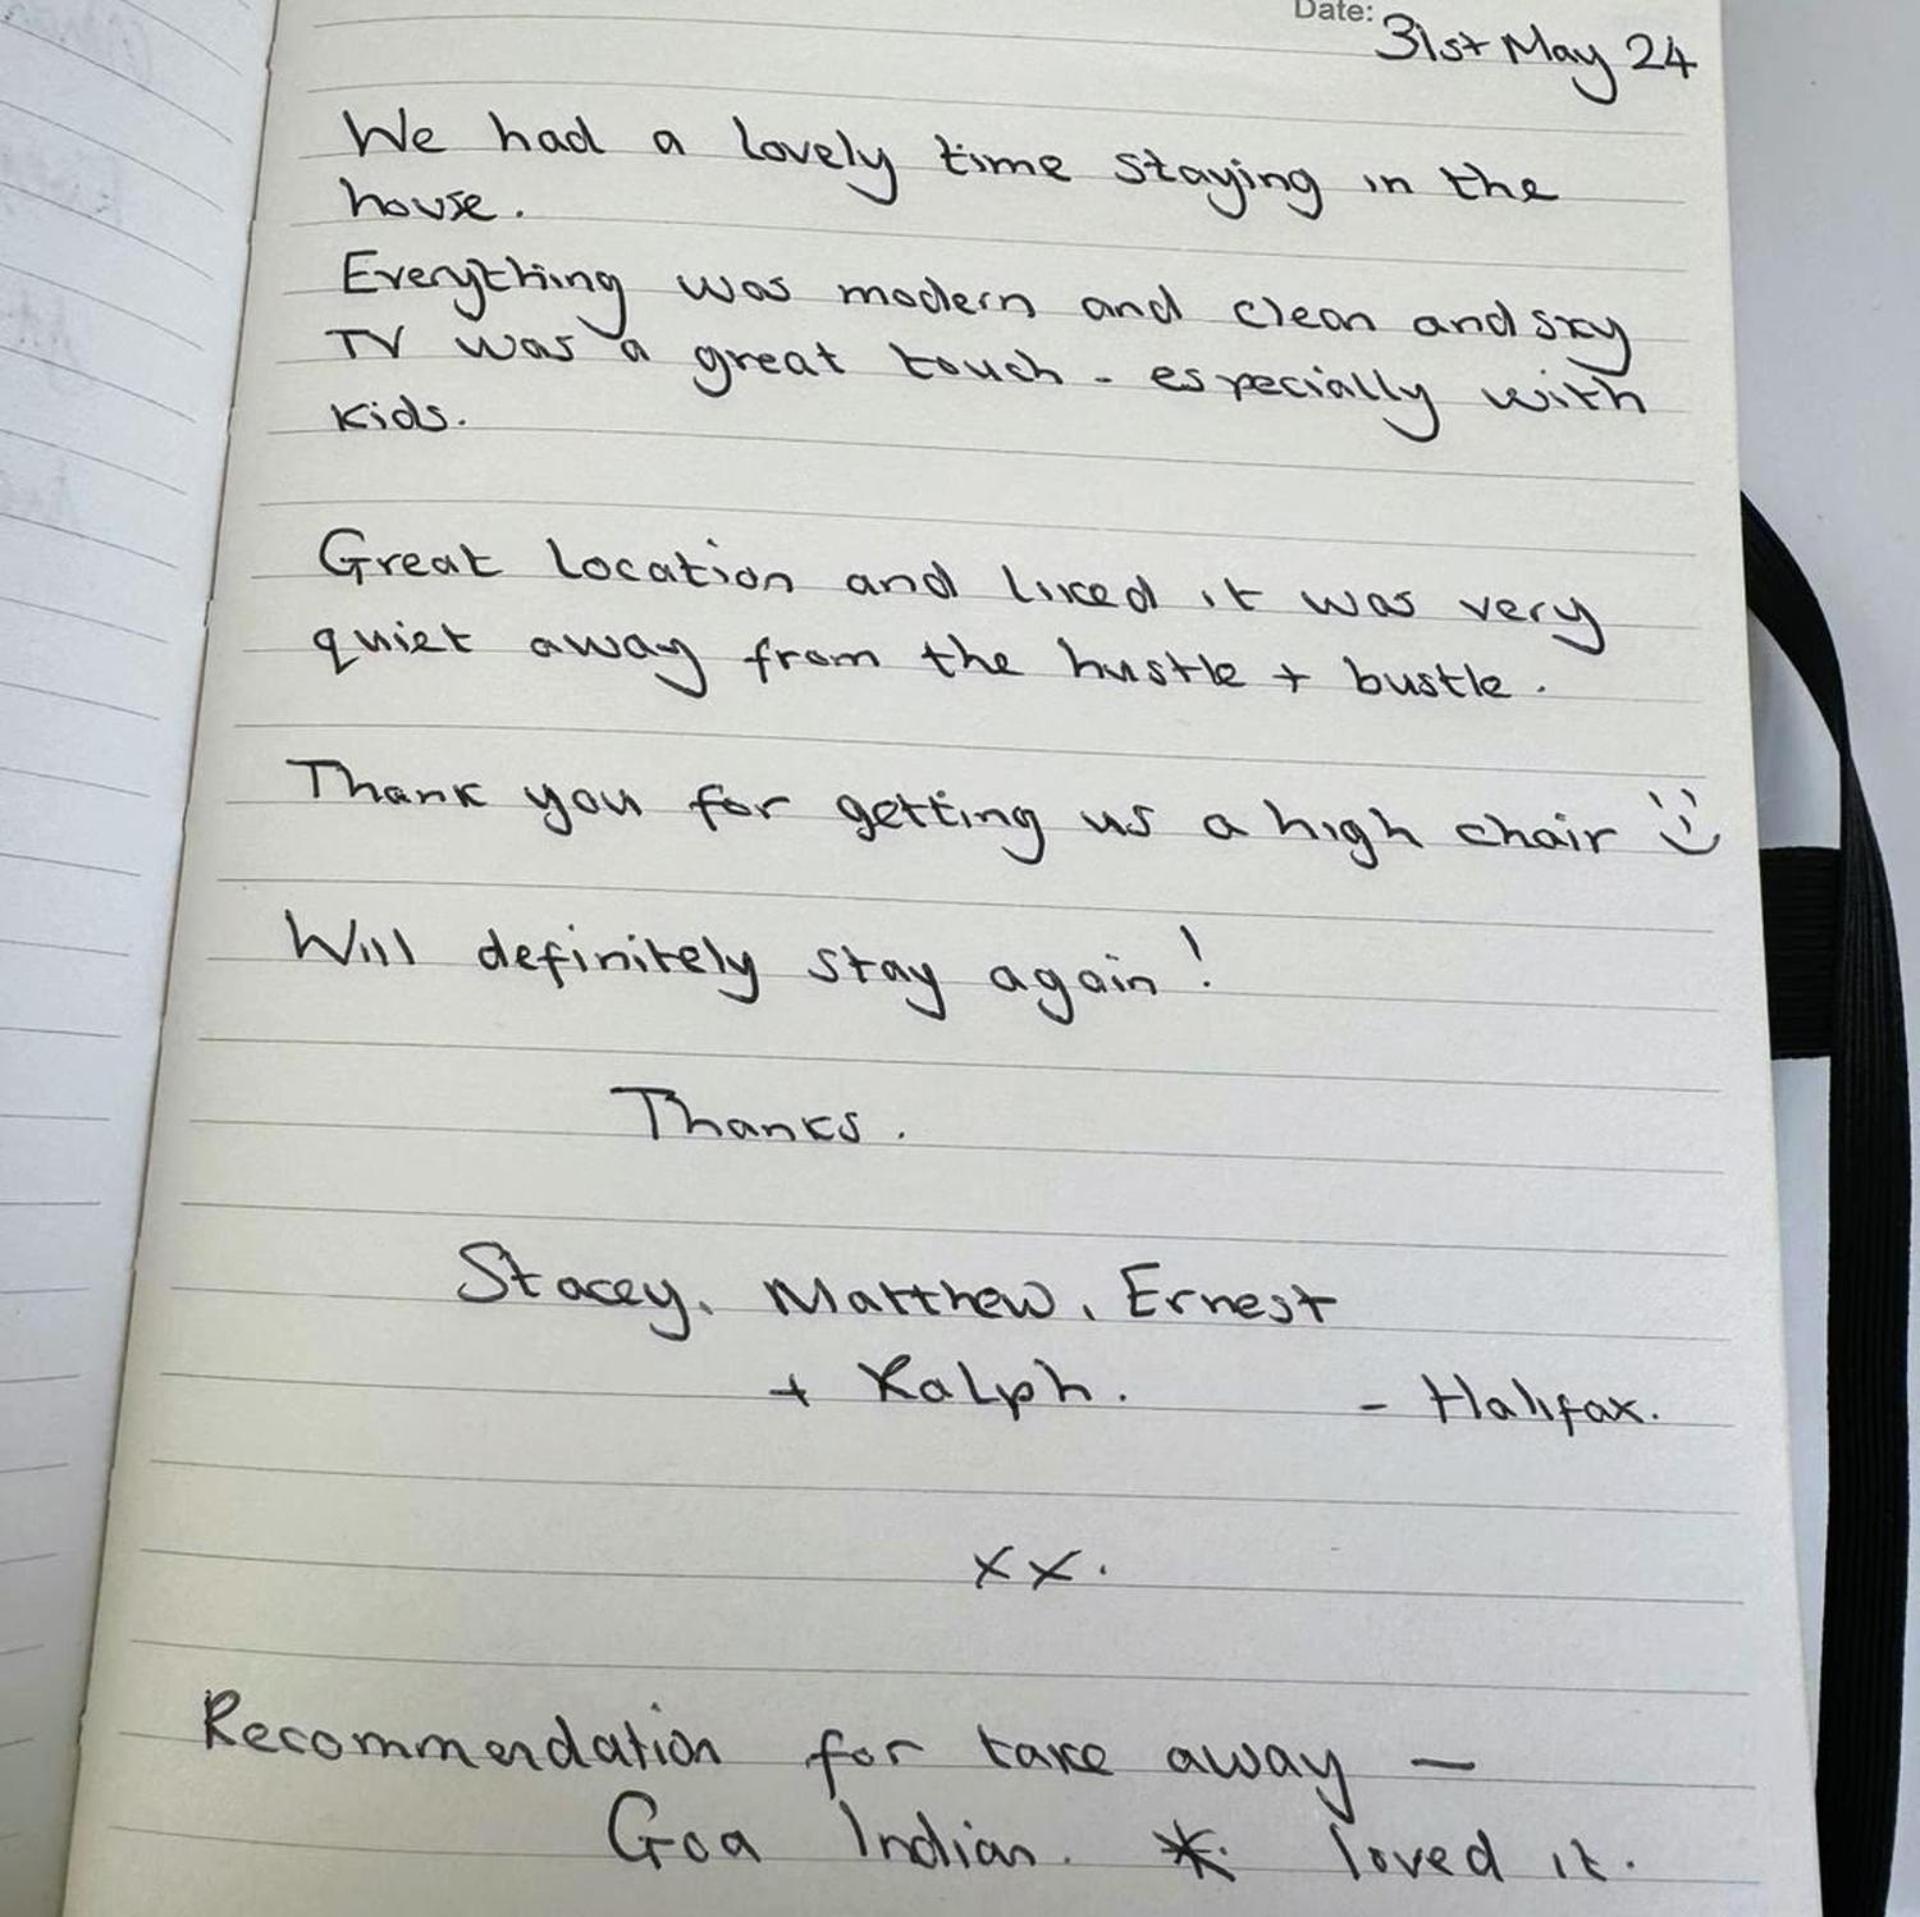 Date: 31st May 24
We had a lovely time staying in the
house.
Everything was modern and clean and sky
TV was a great touch - especially with
kids.
Great location and liked it was very
quiet away from the hustle + bustle.
Thank you for getting us a high chair :)
Will definitely stay again!
Thanks.
Stacey, Matthew, Ernest
+ Ralph. - Halifax.
xx.
Recommendation for take away —
Goa Indian. * loved it.